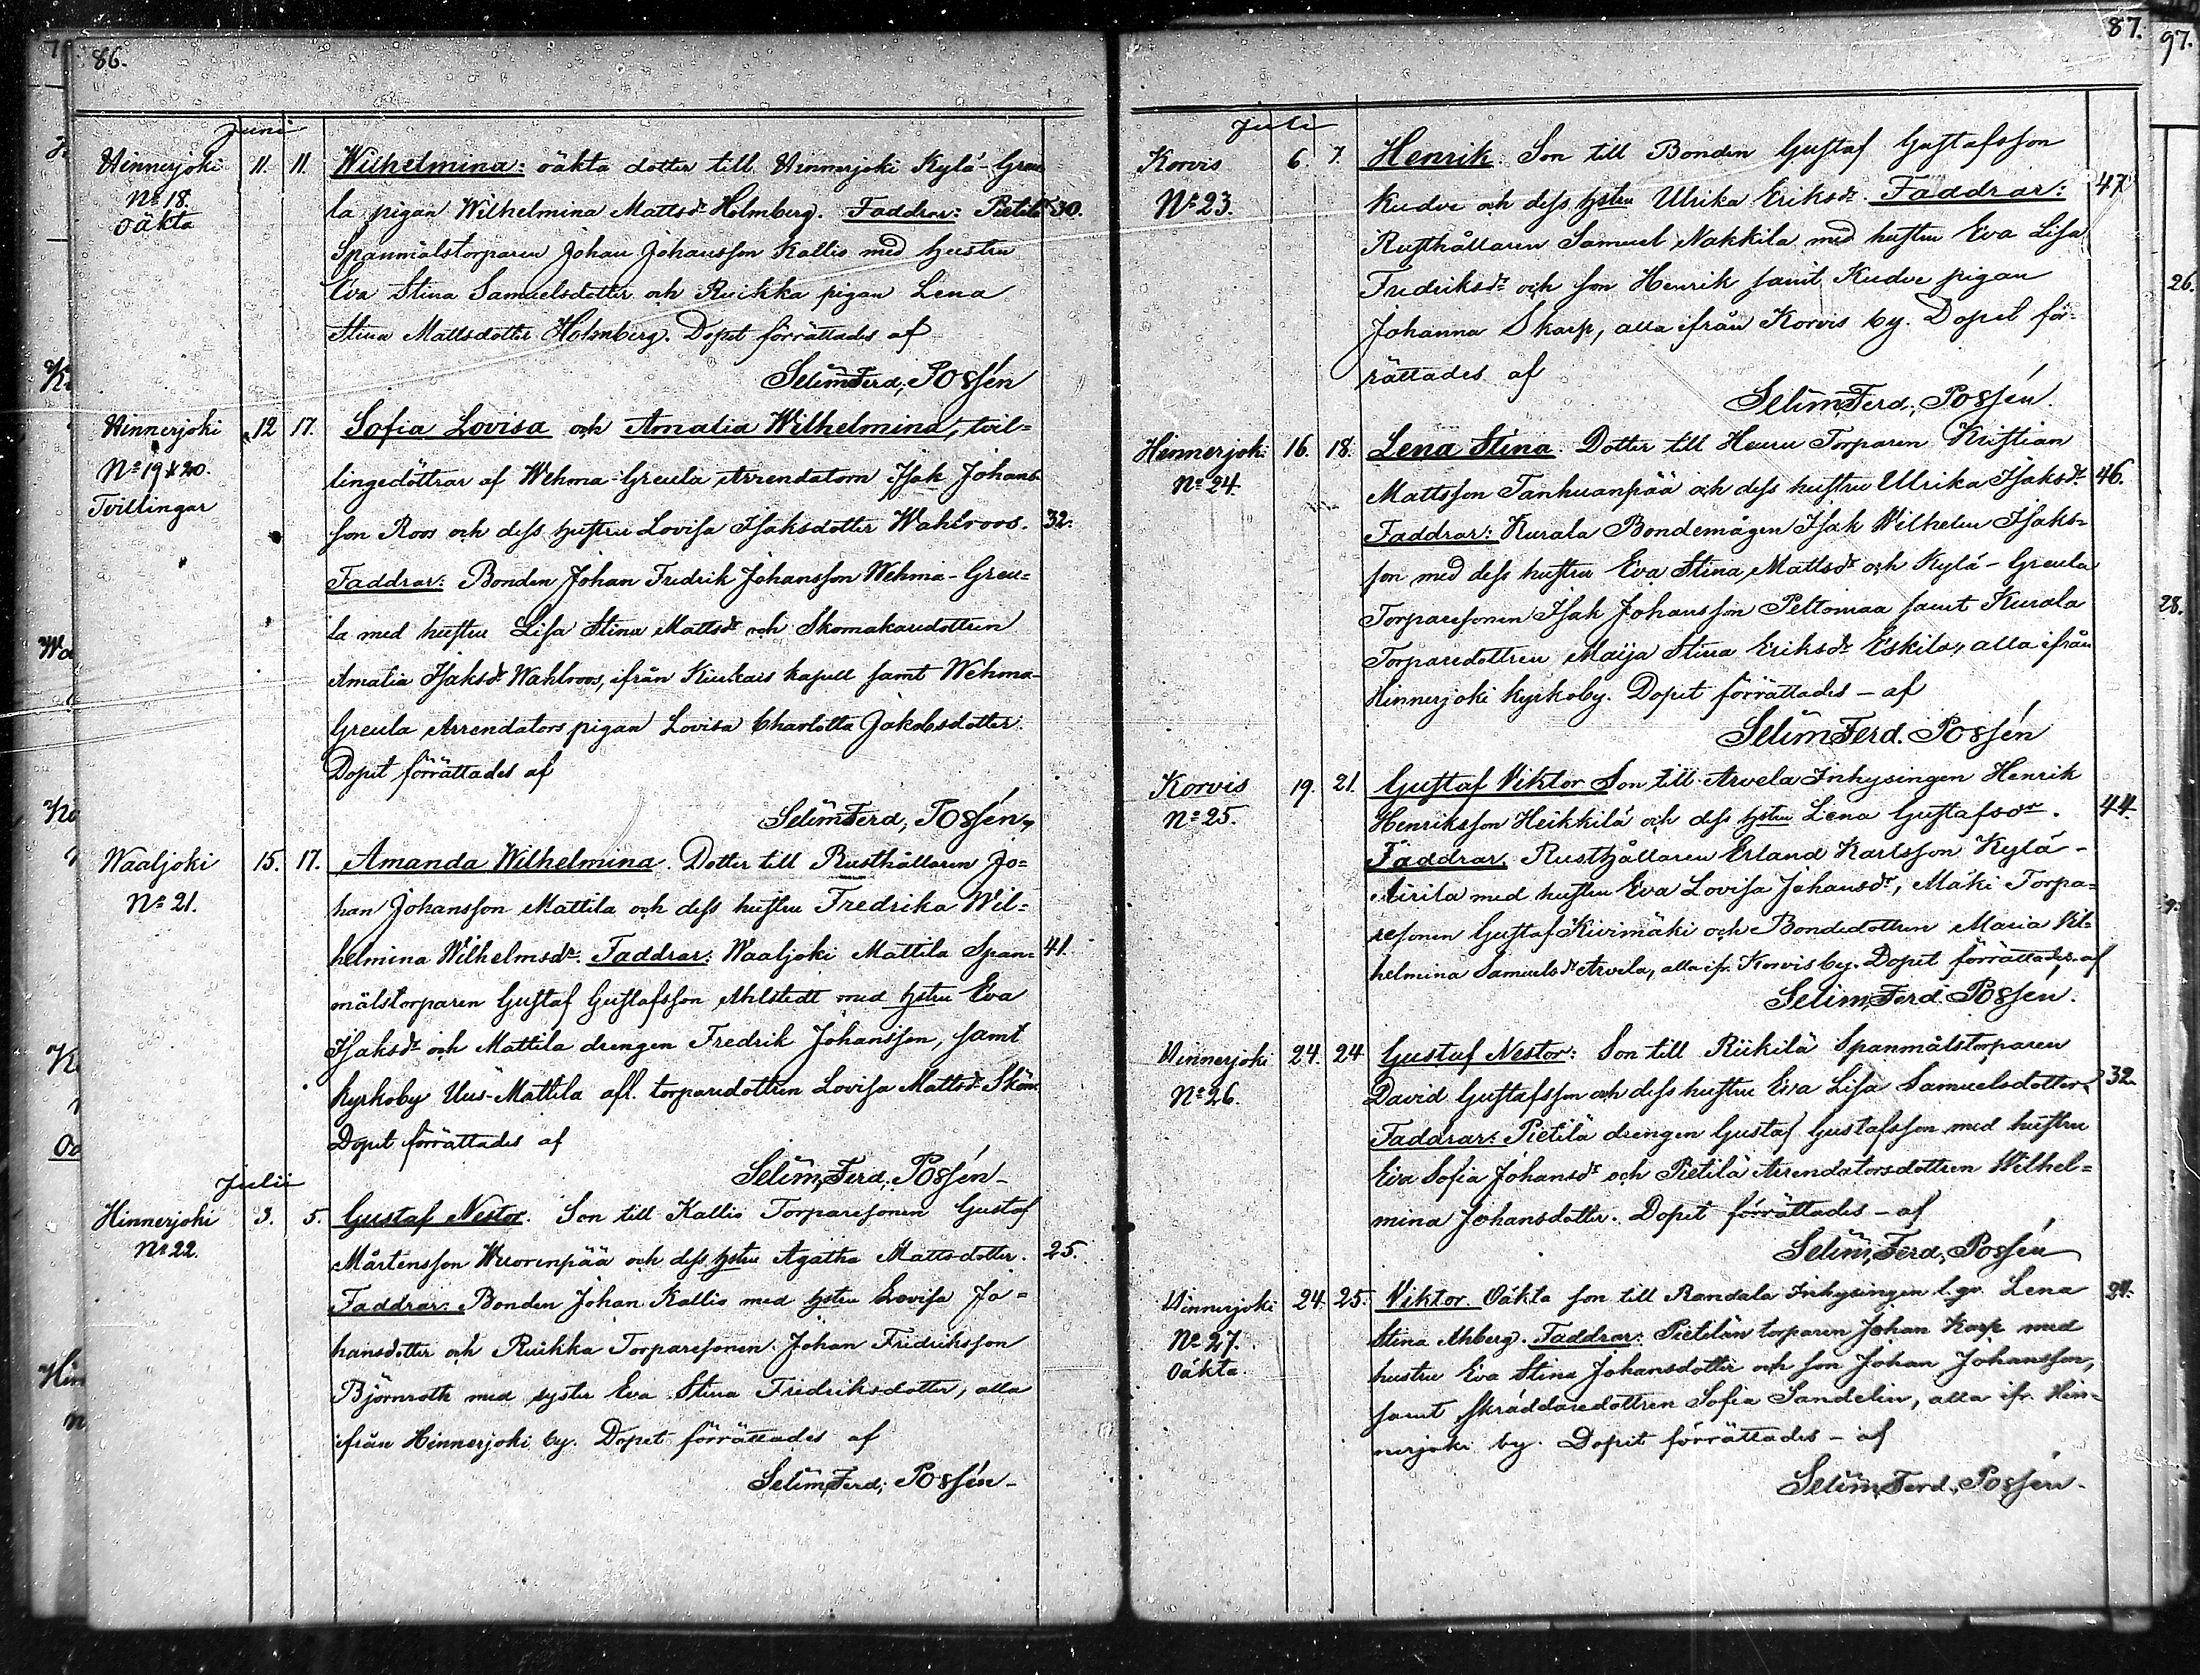 86.
Juni
Hinnerjoki 11. 11. Wilhelmina: oäkta dotter till Hinnerjoki Kylä-Greu
No 18. la pigan Wilhelmina Mattsdr Holmberg. Faddrar: Pietilä 30.
oäkta Spanmålstorparen Johan Johansson Kallio med hustru
Eva Stina Samuelsdotter och Ruikka pigan Lena
Stina Mattsdotter Holmberg. Dopet förrättades af
Selim Ferd. Possén
Hinnerjoki 12 17. Sofia Lovisa och Amalia Wilhelmina, tvil=
No 19 & 20. lingedöttrar af Wehma-Greula Arrendatorn Isak Johans
Tvillingar son Roos och dess hustru Lovisa Isaksdotter Wahlroos. 32.
Faddrar: Bonden Johan Fredrik Johansson Wehma-Greu=
la med hustru Lisa Stina Mattsdr och Skomakaredottren
Amalia Isaksdr Wahlroos, ifrån Kiukais kapell samt Wehma-
Greula Arrendators pigan Lovisa Charlotta Jakobsdotter.
Dopet förrättades af
Selim Ferd. Possén
Waaljoki 15. 17. Amanda Wilhelmina. Dotter till Rusthållaren Jo=
No 21. han Johansson Mattila och dess hustru Fredrika Wil=
helmina Wilhelmsdr. Faddrar: Waaljoki Mattila Span= 41.
målstorparen Gustaf Gustafsson Ahlstedt med hstru Eva
Isaksdr och Mattila drengen Fredrik Johansson, samt
Kyrkoby Uus-Mattila afl. torparedottren Lovisa Mattsdr Skön.
Dopet förrättades af
Selim Ferd. Possén
Julii
Hinnerjoki 3. 5. Gustaf Nestor. Son till Kallio Torparesonen Gustaf
No 22. Mårtensson Wuorenpää och dess hstru Agatha Mattsdotter. 25.
Faddrar: Bonden Johan Kallio med hstru Lovisa Jo=
hansdotter och Ruikka Torparesonen Johan Fredriksson
Björnroth med syster Eva Stina Fredriksdotter, alla
ifrån Hinnerjoki by. Dopet förrättades af
Selim Ferd. Possén
87.
Juli
Korvis 6. 7. Henrik. Son till Bonden Gustaf Gustafsson
No 23. Kudve och dess hstru Ulrika Eriksdr. Faddrar: 47
Rusthållaren Samuel Nakkila med hustru Eva Lisa
Fredriksdr och son Henrik samt Kudve pigan
Johanna Skarp, alla ifrån Korvis by. Dopet för-
rättades af
Selim Ferd. Possén.
Hinnerjoki 16. 18. Lena Stina. Dotter till Heuru Torparen Kristian
No 24. Mattsson Tanhuanpää och dess hustru Ulrika Isaksdr. 46.
Faddrar: Kurala Bondemågen Isak Wilhelm Isaks=
son med dess hustru Eva Stina Mattsdr och Kylä-Greula
Torparesonen Isak Johansson Peltomaa samt Kurala
Torparedottren Maija Stina Eriksdr Eskila, alla ifrån
Hinnerjoki kyrkoby. Dopet förrättades - af
Selim Ferd. Possén
Korvis 19. 21. Gustaf Viktor Son till Arvela Inhysingen Henrik
No 25. Henriksson Heikkilä och dess hstru Lena Gustafsdr. 44.
Faddrar, Rusthållaren Erland Karlsson Kylä-
Airila med hustru Eva Lovisa Johansdr, Mäki Torpa=
resonen Gustaf Kivimäki och Bondedottren Maria Vil=
helmina Samuelsdr Arvela, alla ifr. Korvis by. Dopet förrättades af
Selim Ferd. Possén.
Hinnerjoki 24. 24 Gustaf Nestor: Son till Riikilä Spanmålstorparen
No 26. David Gustafsson och dess hustru Eva Lisa Samuelsdotter. 32.
Faddrar: Pietilä drengen Gustaf Gustafsson med hustru
Eva Sofia Johansdr och Pietilä Arrendatorsdottren Wilhel=
mina Johansdotter. Dopet förrättades - af
Selim Ferd. Possén
Hinnerjoki 24. 25. Viktor. Oäkta son till Randala Inhysingen l. qv. Lena 24.
No 27. Stina Ahberg. Faddrar: Pietilän torparen Johan Karp med
Oäkta. hustru Eva Stina Johansdotter och son Johan Johansson,
samt skräddaredottren Sofia Sandelin, alla ifr. Hin=
nerjoki by. Dopet förrättades - af
Selim Ferd. Possén.
97.
26.
28.